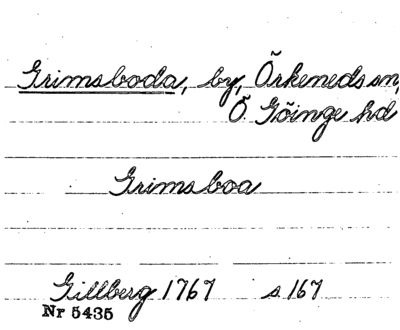 Grimsboda, by, Örkeneds sn,
Ö. Göinge hd
Grimsboa
Gillberg 1767 s 167
Nr 5435